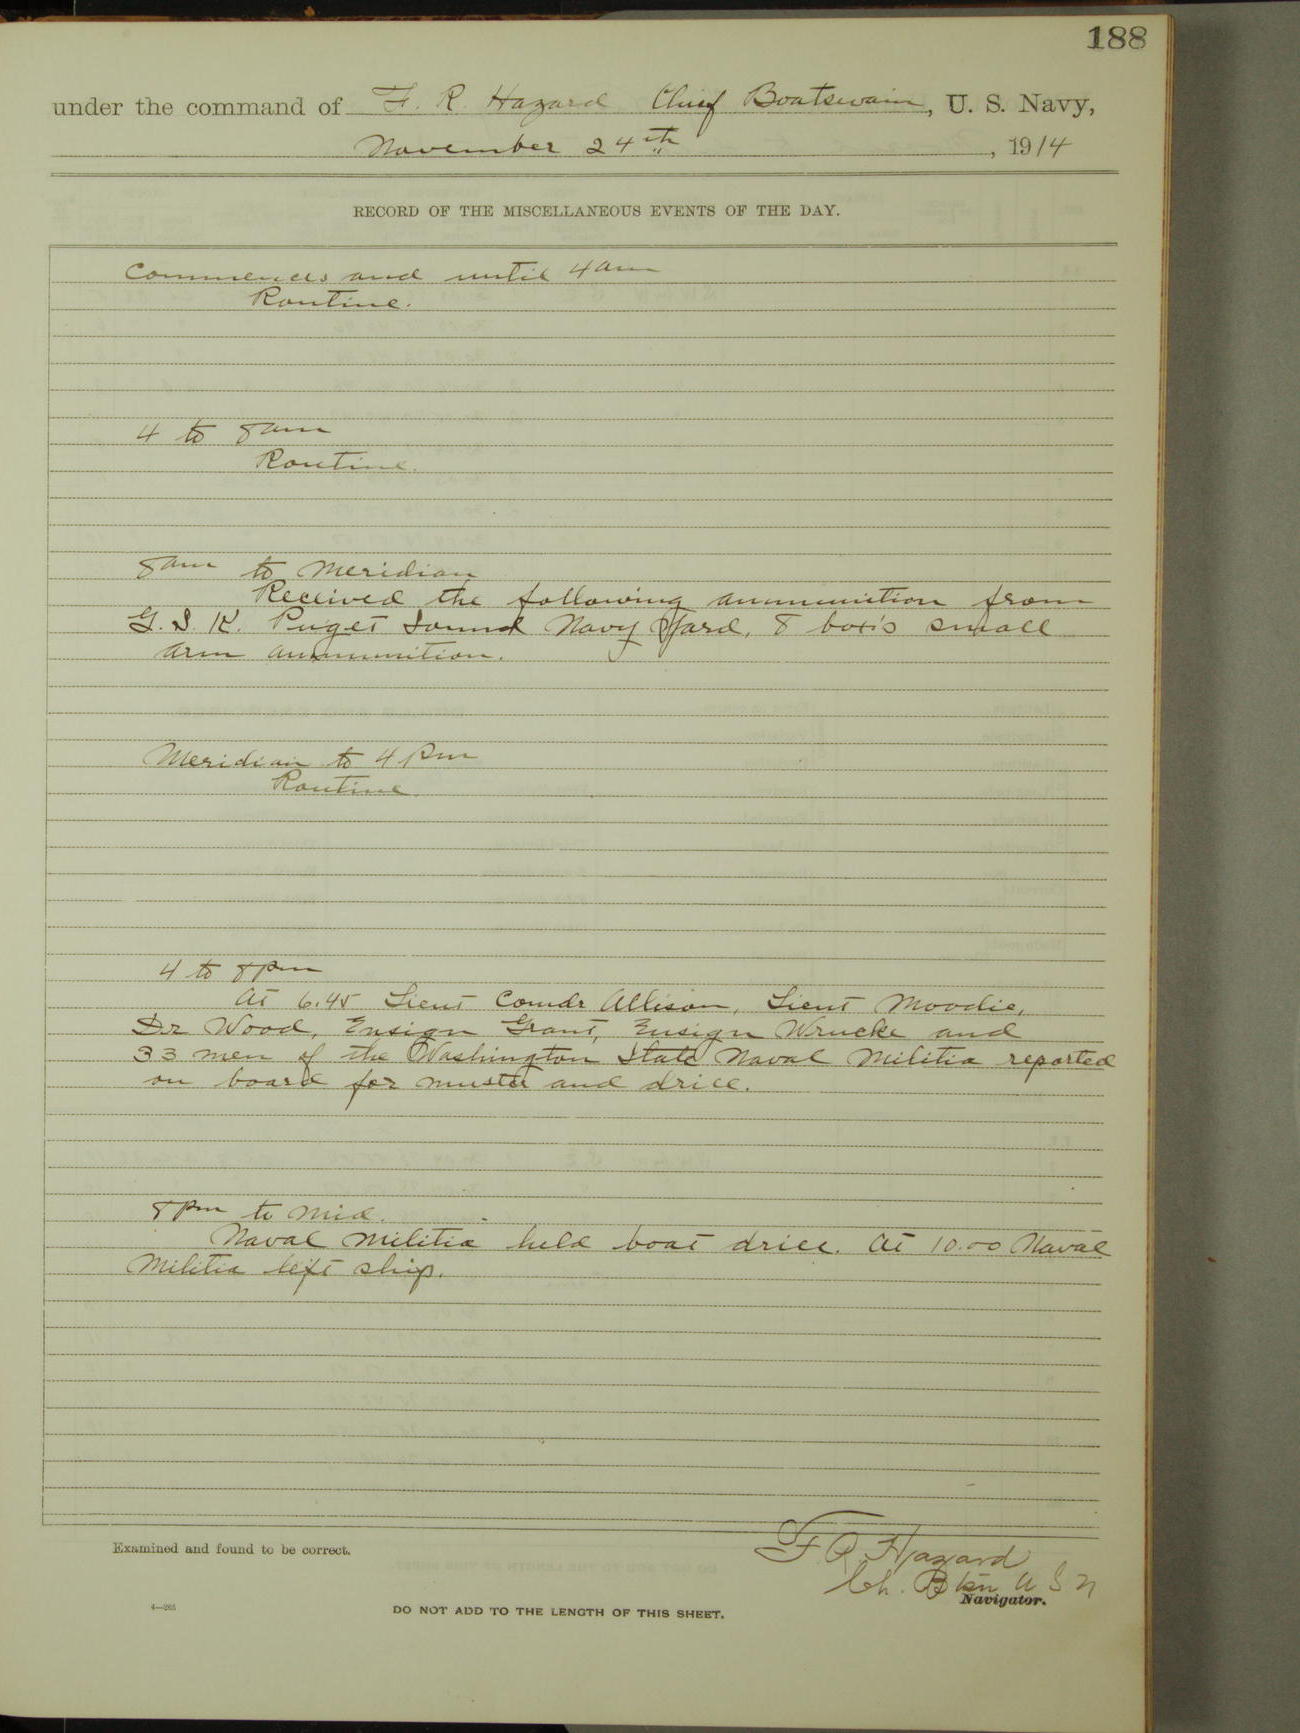 188
under the command of F. R. Hazard Chief Boatswain, U. S. Navy,
November 24th, 1914
RECORD OF THE MISCELLANEOUS EVENTS OF THE DAY.
Commences and until 4 am
Routine.
4 to 8 am
Routine.
8 am to Meridian
Received the following ammunition from
G. S. K. Puget Sound Navy Yard, 8 box's small
arm ammunition.
Meridian to 4 Pm
Routine
4 to 8 Pm
At 6.45 Lieut Comdr Allison, Lieut Moodie,
Dr Wood, Ensign Grant, Ensign Wrucke and
33 men of the Washington State Naval Militia reported
on board for muster and drill.
8 Pm to Mid.
Naval Militia held boat drill. At 10.00 Naval
Militia left ship.
F. R. Hazard
Ch. Btsn U S N
Examined and found to be correct.
Navigator.
4—265
DO NOT ADD TO THE LENGTH OF THIS SHEET.